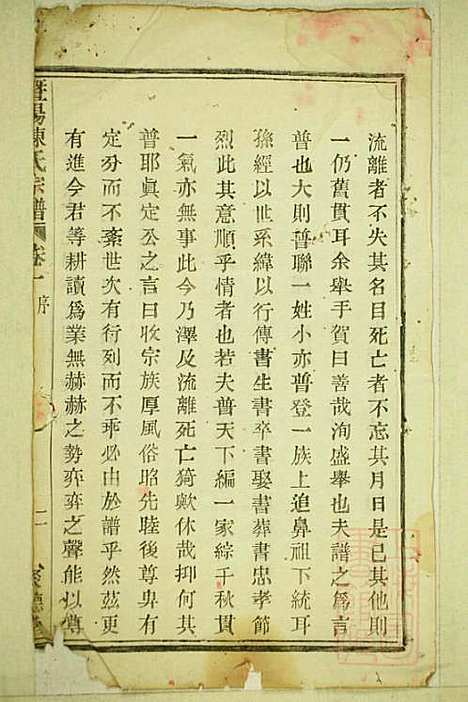 流離者不失其名目死亡者不忘其月日是已其他則
一仍舊貫耳余舉手賀曰善哉洵盛舉也夫譜之爲言
普也大則普聯一姓小亦普登一族上追鼻祖下統耳
孫經以世系緯以行傳書生書卒書娶書葬書忠孝節
烈此其意順乎情者也若夫普天下編一家綜千秋貫
一氣亦無事此今乃澤及流離死亡猗歟休哉抑何其
普耶眞定公之言曰收宗族厚風俗昭先陸後尊卑有
定分而不紊世次有行列而不乖必由於譜乎然茲更
有進今君等耕讀爲業無赫赫之勢弈弈之聲能以尊
暨陽陳氏宗譜 卷一 序 二